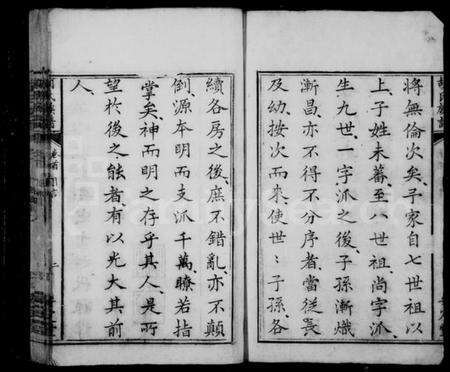 將無倫次矣予家自七世祖以
上子姓未蕃至八世祖尚字派、
生九世一字派之後子孫漸熾
漸昌亦不得不分序者當從長
及幼、按次而来、使世〻子孫、各
續各房之後庶不錯亂、亦不顛
倒、源本明而支派千萬瞭若指
掌矣、神而明之存乎其人、是所
望於後之能者有以光大其前
人、